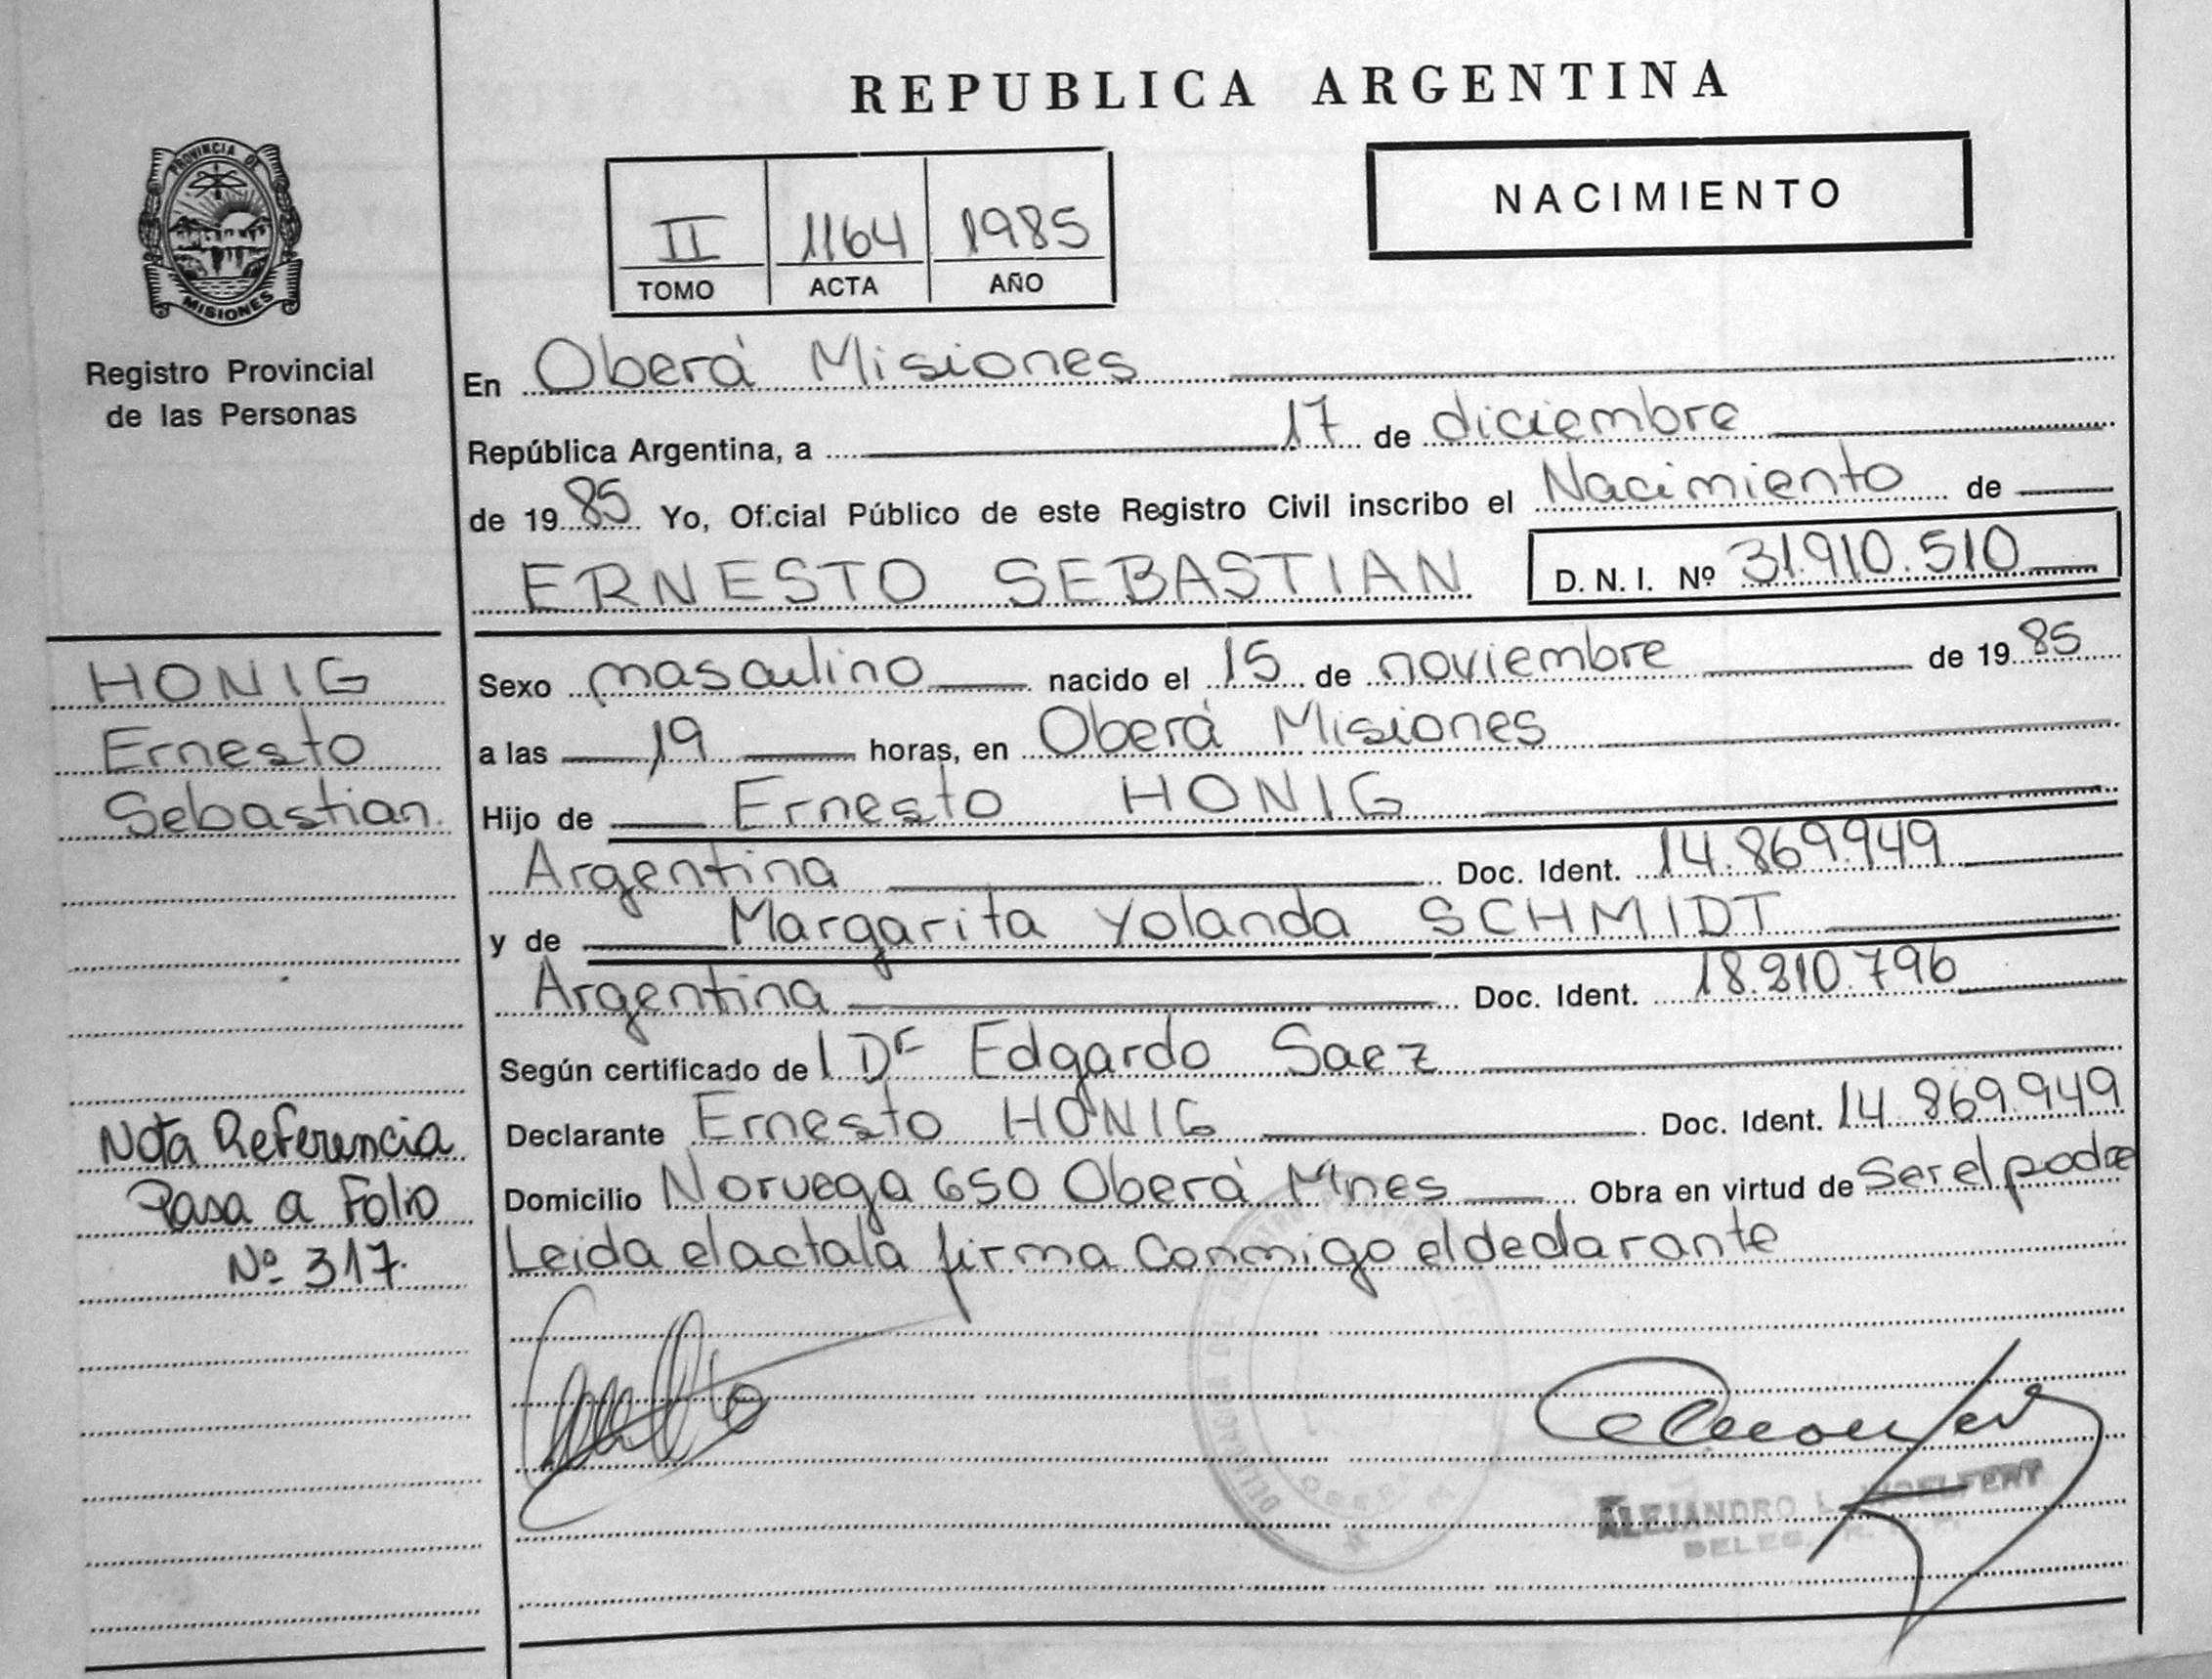 REPUBLICA ARGENTINA
PROVINCIA DE
MISIONES
Registro Provincial
de las Personas
II 1164 1985
TOMO ACTA AÑO
NACIMIENTO
En Oberá Misiones
República Argentina, a 17 de diciembre
de 1985 Yo, Oficial Público de este Registro Civil inscribo el Nacimiento de
ERNESTO SEBASTIAN D. N. I. Nº 31.910.510
HONIG
Ernesto
Sebastian.
Sexo masculino nacido el 15 de noviembre de 1985
a las 19 horas, en Oberá Misiones
Hijo de Ernesto HONIG
Argentina Doc. Ident. 14.869.949
y de Margarita Yolanda SCHMIDT
Argentina Doc. Ident. 18.210.796
Según certificado del Dr Edgardo Saez
Declarante Ernesto HONIG Doc. Ident. 14.869.949
Domicilio Noruega 650 Oberá Mnes Obra en virtud de Ser el padre
Leida el acta la firma Conmigo el declarante
Nota Referencia
Pasa a Folio
Nº 317.
ALEJANDRO L.
DELEG.